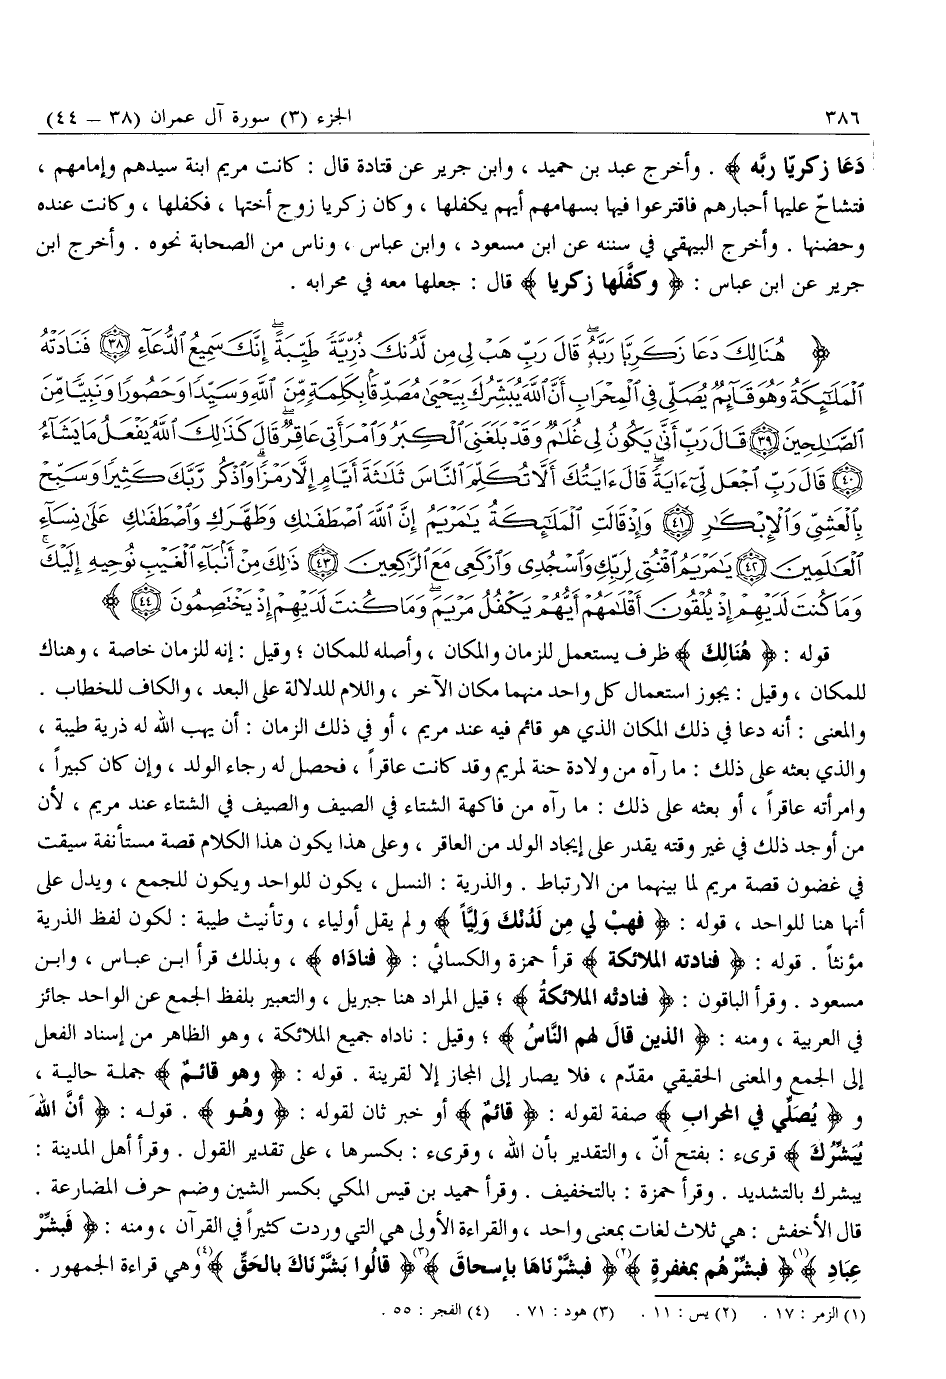 ٣٨٦ الجزء (٣) سورة آل عمران (٣٨ – ٤٤)
دَعَا زكريّا ربَّه ﴾ . وأخرج عبد بن حميد ، وابن جرير عن قتادة قال : كانت مريم ابنة سيدهم وإمامهم ،
فتشاحّ عليها أحبارهم فاقترعوا فيها بسهامهم أيهم يكفلها ، وكان زكريا زوج أختها ، فكفلها ، وكانت عنده
وحضنها . وأخرج البيهقي في سننه عن ابن مسعود ، وابن عباس ، وناس من الصحابة نحوه . وأخرج ابن
جرير عن ابن عباس : ﴿ وكفَّلَها زكريا ﴾ قال : جعلها معه في محرابه .
﴿ هُنَالِكَ دَعَا زَكَرِيَّا رَبَّهُۥۖ قَالَ رَبِّ هَبۡ لِي مِن لَّدُنكَ ذُرِّيَّةٗ طَيِّبَةًۖ إِنَّكَ سَمِيعُ ٱلدُّعَآءِ ٣٨ فَنَادَتۡهُ
ٱلۡمَلَٰٓئِكَةُ وَهُوَ قَآئِمٞ يُصَلِّي فِي ٱلۡمِحۡرَابِ أَنَّ ٱللَّهَ يُبَشِّرُكَ بِيَحۡيَىٰ مُصَدِّقَۢا بِكَلِمَةٖ مِّنَ ٱللَّهِ وَسَيِّدٗا وَحَصُورٗا وَنَبِيّٗا مِّنَ
ٱلصَّٰلِحِينَ ٣٩ قَالَ رَبِّ أَنَّىٰ يَكُونُ لِي غُلَٰمٞ وَقَدۡ بَلَغَنِيَ ٱلۡكِبَرُ وَٱمۡرَأَتِي عَاقِرٞۖ قَالَ كَذَٰلِكَ ٱللَّهُ يَفۡعَلُ مَا يَشَآءُ
٤٠ قَالَ رَبِّ ٱجۡعَل لِّيٓ ءَايَةٗۖ قَالَ ءَايَتُكَ أَلَّا تُكَلِّمَ ٱلنَّاسَ ثَلَٰثَةَ أَيَّامٍ إِلَّا رَمۡزٗاۗ وَٱذۡكُر رَّبَّكَ كَثِيرٗا وَسَبِّحۡ
بِٱلۡعَشِيِّ وَٱلۡإِبۡكَٰرِ ٤١ وَإِذۡ قَالَتِ ٱلۡمَلَٰٓئِكَةُ يَٰمَرۡيَمُ إِنَّ ٱللَّهَ ٱصۡطَفَىٰكِ وَطَهَّرَكِ وَٱصۡطَفَىٰكِ عَلَىٰ نِسَآءِ
ٱلۡعَٰلَمِينَ ٤٢ يَٰمَرۡيَمُ ٱقۡنُتِي لِرَبِّكِ وَٱسۡجُدِي وَٱرۡكَعِي مَعَ ٱلرَّٰكِعِينَ ٤٣ ذَٰلِكَ مِنۡ أَنۢبَآءِ ٱلۡغَيۡبِ نُوحِيهِ إِلَيۡكَۚ
وَمَا كُنتَ لَدَيۡهِمۡ إِذۡ يُلۡقُونَ أَقۡلَٰمَهُمۡ أَيُّهُمۡ يَكۡفُلُ مَرۡيَمَ وَمَا كُنتَ لَدَيۡهِمۡ إِذۡ يَخۡتَصِمُونَ ٤٤ ﴾
قوله : ﴿ هُنَالِكَ ﴾ ظرف يستعمل للزمان والمكان ، وأصله للمكان ؛ وقيل : إنه للزمان خاصة ، وهناك
للمكان ، وقيل : يجوز استعمال كل واحد منهما مكان الآخر ، واللام للدلالة على البعد ، والكاف للخطاب .
والمعنى : أنه دعا في ذلك المكان الذي هو قائم فيه عند مريم ، أو في ذلك الزمان : أن يهب الله له ذرية طيبة ،
والذي بعثه على ذلك : ما رآه من ولادة حنة لمريم وقد كانت عاقراً ، فحصل له رجاء الولد ، وإن كان كبيراً ،
وامرأته عاقراً ، أو بعثه على ذلك : ما رآه من فاكهة الشتاء في الصيف والصيف في الشتاء عند مريم ، لأن
من أوجد ذلك في غير وقته يقدر على إيجاد الولد من العاقر ، وعلى هذا يكون هذا الكلام قصة مستأنفة سيقت
في غضون قصة مريم لما بينهما من الارتباط . والذرية : النسل ، يكون للواحد ويكون للجمع ، ويدل على
أنها هنا للواحد ، قوله : ﴿ فهبْ لي مِن لَدُنْكَ وَلِيَّاً ﴾ و لم يقل أولياء ، وتأنيث طيبة : لكون لفظ الذرية
مؤنثاً . قوله : ﴿ فنادته الملائكة ﴾ قرأ حمزة والكسائي : ﴿ فنادَاه ﴾ ، وبذلك قرأ ابن عباس ، وابن
مسعود . وقرأ الباقون : ﴿ فنادتْه الملائكةُ ﴾ ؛ قيل المراد هنا جبريل ، والتعبير بلفظ الجمع عن الواحد جائز
في العربية ، ومنه : ﴿ الذين قالَ لهم النَّاسُ ﴾ ؛ وقيل : ناداه جميع الملائكة ، وهو الظاهر من إسناد الفعل
إلى الجمع والمعنى الحقيقي مقدّم ، فلا يصار إلى المجاز إلا لقرينة . قوله : ﴿ وهو قائمٌ ﴾ جملة حالية ،
و ﴿ يُصَلِّي في المحرابِ ﴾ صفة لقوله : ﴿ قائمٌ ﴾ أو خبر ثان لقوله : ﴿ وهُو ﴾ . قوله : ﴿ أنَّ اللهَ
يُبَشِّرُكَ ﴾ قرىء : بفتح أنّ ، والتقدير بأن الله ، وقرىء : بكسرها ، على تقدير القول . وقرأ أهل المدينة :
يبشرك بالتشديد . وقرأ حمزة : بالتخفيف . وقرأ حميد بن قيس المكي بكسر الشين وضم حرف المضارعة .
قال الأخفش : هي ثلاث لغات بمعنى واحد ، والقراءة الأولى هي التي وردت كثيراً في القرآن ، ومنه : ﴿ فَبشِّرْ
عِبَادِ ﴾(١) ﴿ فبشِّرْهُم بمغفرةٍ ﴾(٢) ﴿ فبشَّرْنَاهَا بإسحاقَ ﴾(٣) ﴿ قالُوا بَشَّرْنَاكَ بالحَقِّ ﴾(٤) وهي قراءة الجمهور .
(١) الزمر : ١٧ . (٢) يس : ١١ . (٣) هود : ٧١ . (٤) الفجر : ٥٥ .